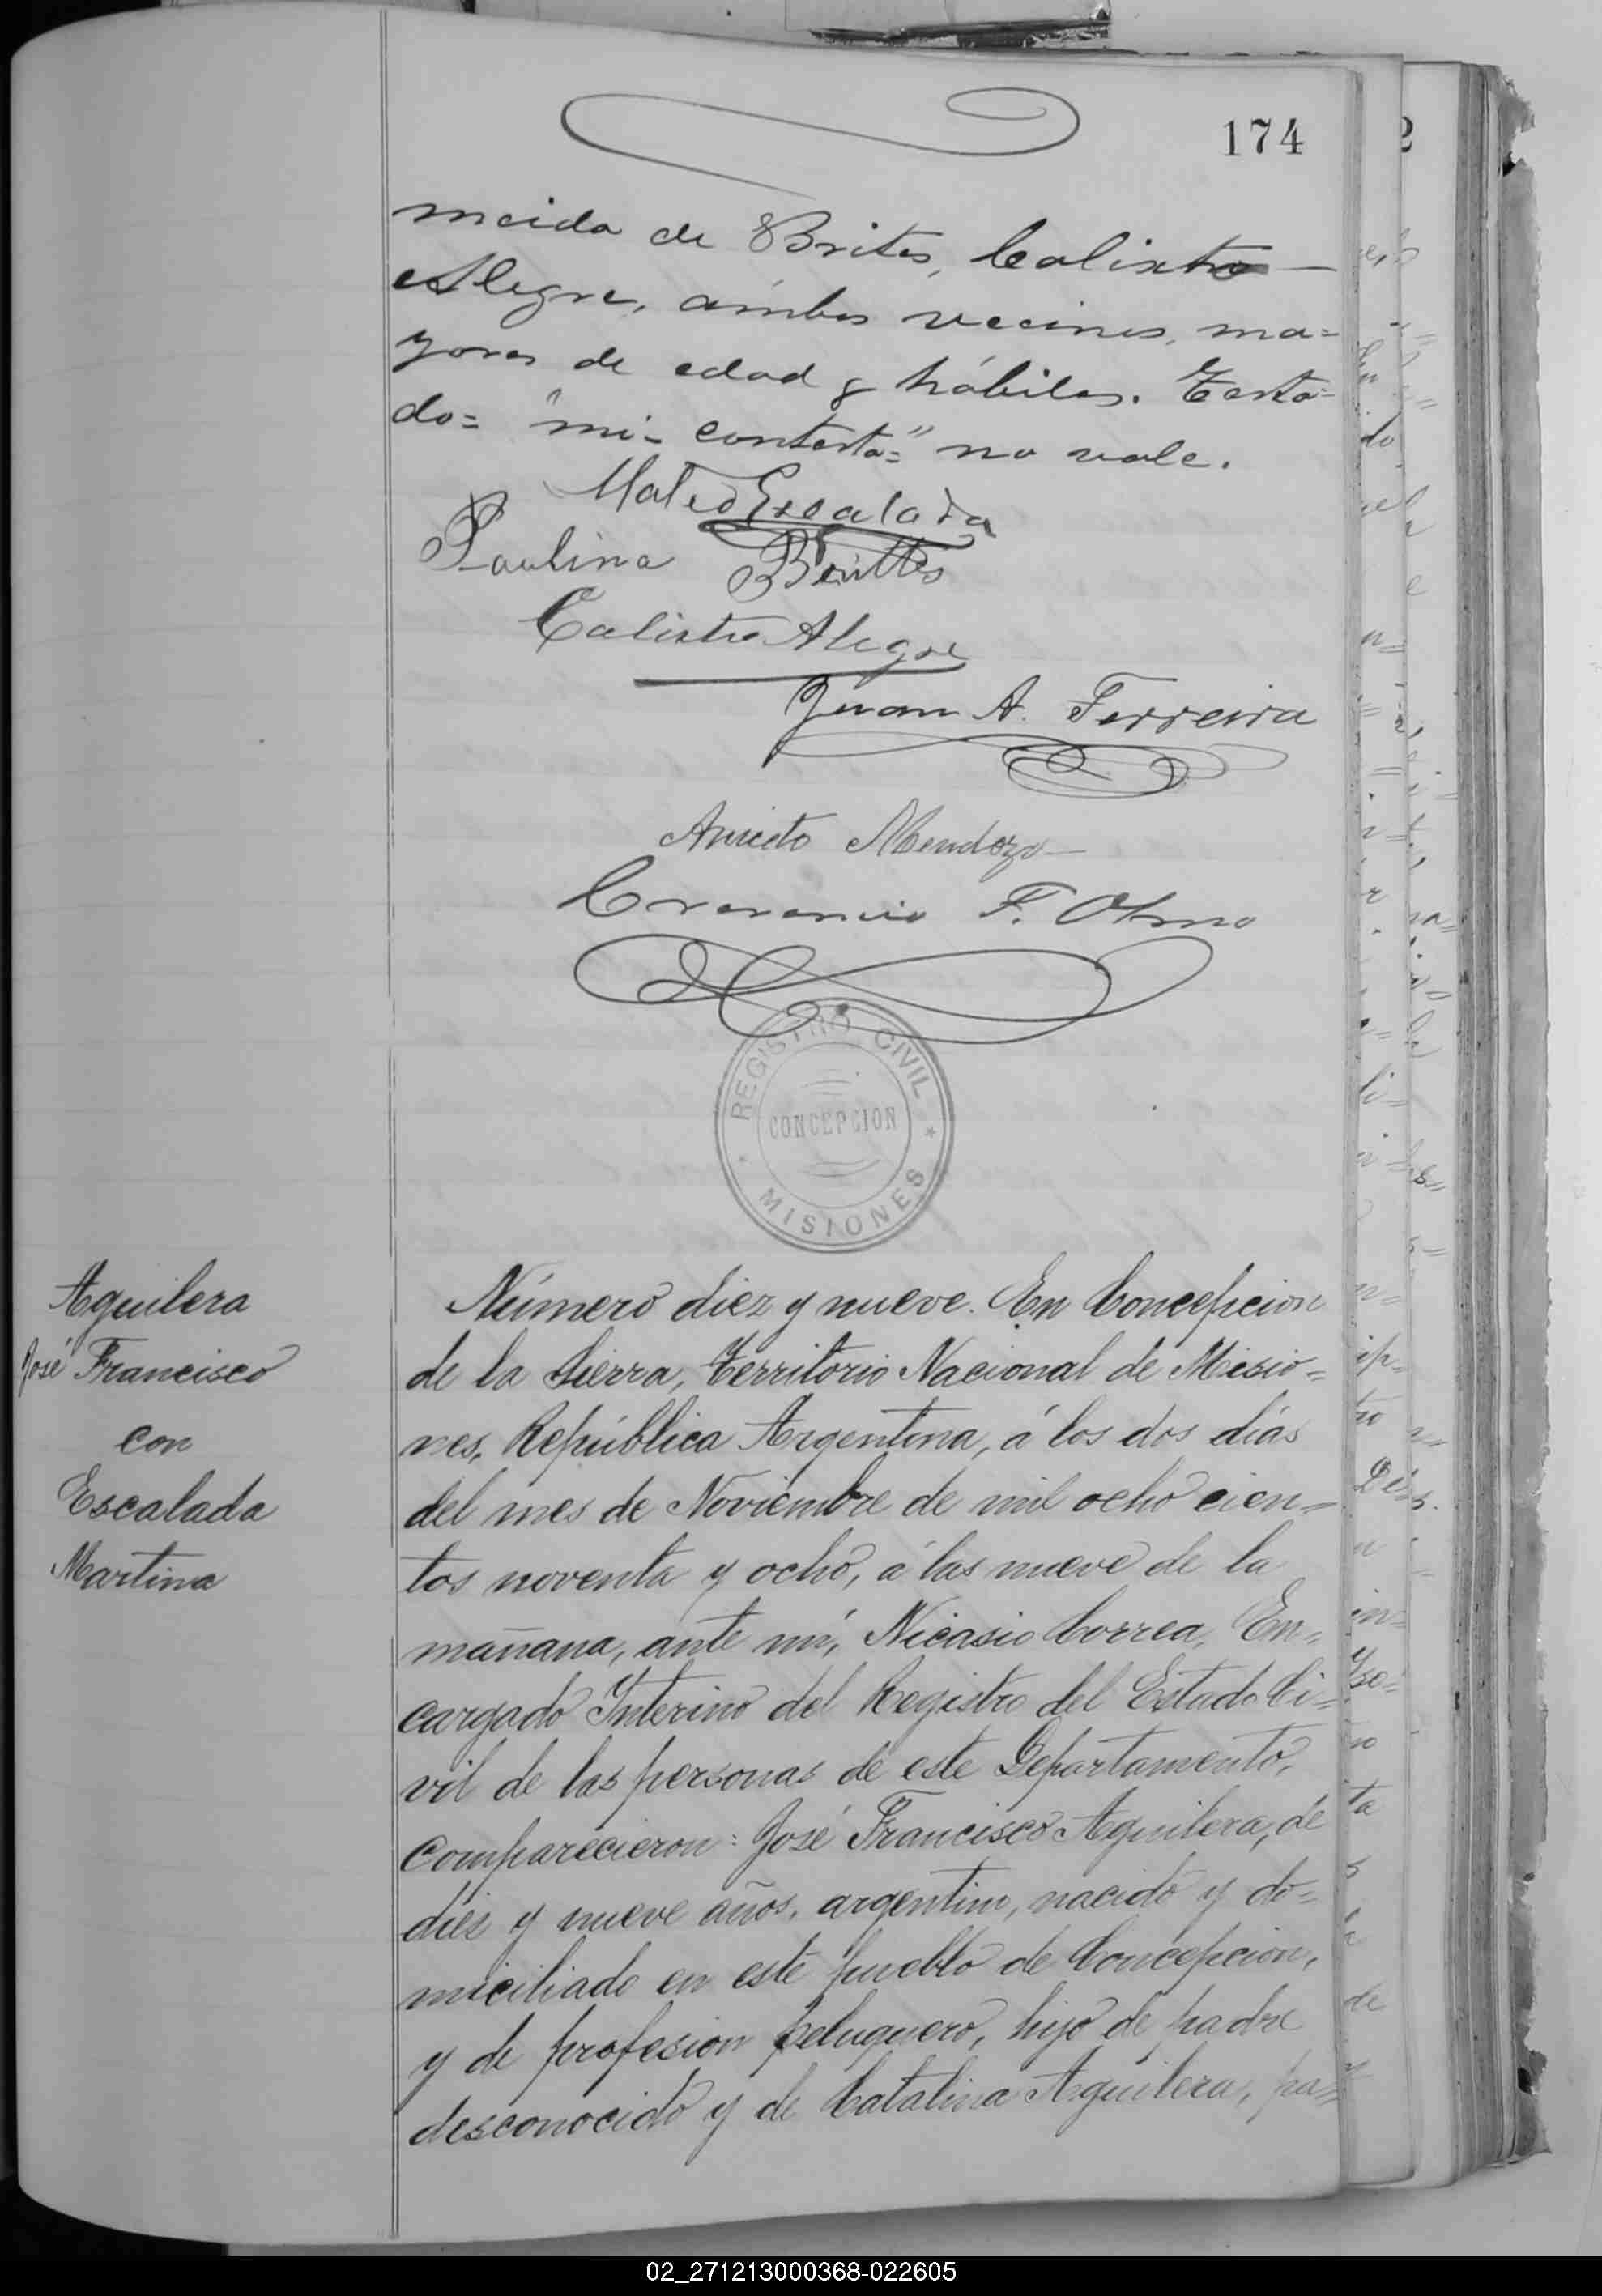 174
mcida de Brites, Calixto
Alegre, ámbos vecinos, ma=
yores de edad y hábiles. Testa=
do= "mi- contesta=" no vale.
Mateo Escalada
Paulina Benittes
Calixto Alegre
Juan A. Ferreira
Aniceto Mendoza
F. Olmo
REGISTRO CIVIL
CONCEPCION
MISIONES
Aguilera
José Francisco
con
Escalada
Martina
Número diez y nueve. En Concepcion
de la Sierra, Territorio Nacional de Misio=
nes, República Argentina, á los dos días
del mes de Noviembre de mil ocho cien=
tos noventa y ocho, á las nueve de la
mañana, ante mí, Nicasio Correa, En=
cargado Interino del Registro del Estado Ci=
vil de las personas de este Departamento,
comparecieron: José Francisco Aguilera, de
diez y nueve años, argentino, nacido y do=
miciliado en este pueblo de Concepcion,
y de profesion peluquero, hijo de padre
desconocido y de Catalina Aguilera, pa=
02_271213000368-022605